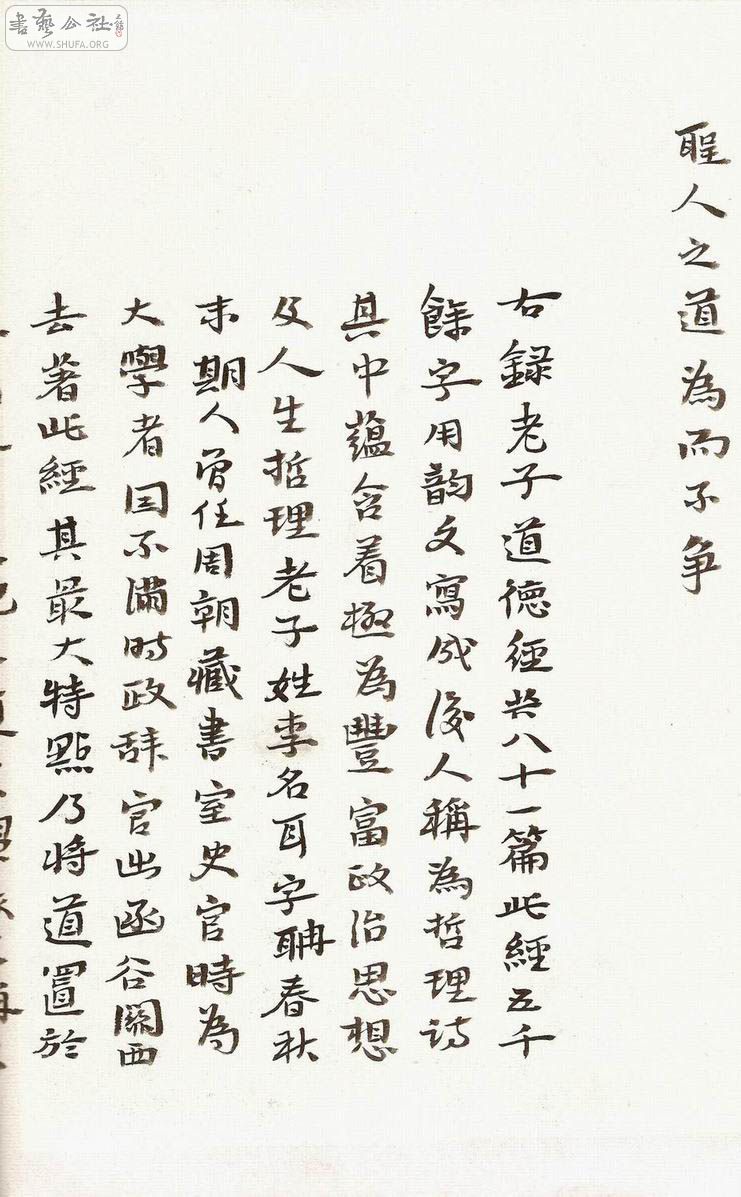 書藝公社
WWW.SHUFA.ORG
聖人之道為而不争
右録老子道德經共八十一篇此經五千
餘字用韵文寫成後人稱為哲理诗
其中蘊含着極為豐富政治思想
及人生哲理老子姓李名耳字聃春秋
末期人曾任周朝藏書室史官時為
大學者因不滿时政辞官出函谷關西
去著此經其最大特點乃将道置於